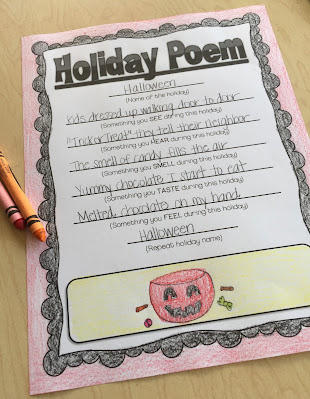 Holiday Poem
Halloween
(Name of the holiday)
Kids dressed up walking door to door
(Something you SEE during this holiday)
"Trick or Treat" they tell their neighbor
(Something you HEAR during this holiday)
The smell of candy fills the air
(Something you SMELL during this holiday)
Yummy chocolate I start to eat
(Something you TASTE during this holiday)
Melted chocolate on my hand,
(Something you FEEL during this holiday)
Halloween
(Repeat holiday name)